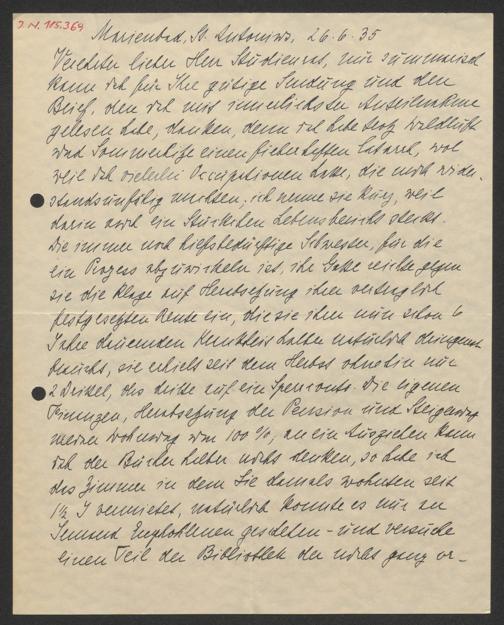 J.N. 185.369
Marienbad, St. Antonius, 26.6.35
Verehrter lieber Herr Studienrat, nur summarisch
kann ich für Ihre gütige Sendung und den
Brief, den ich mit innerlichster Anteilnahme
gelesen habe, danken, denn ich habe trotz Waldluft
und Sommerhitze einen fieberhaften Catarrh, wol
weil ich vielerlei Occupationen hatte, die mich wider-
standsunfähig machten; ich nenne sie kurz, weil
darin auch ein Stückchen Lebensbericht steckt.
Die immer noch hilfsbedürftige Schwester, für die
ein Prozess abzuwickeln ist, ihr Gatte reichte gegen
sie die Klage auf Herabsetzung ihrer vertraglich
festgesetzten Rente ein, die sie ihrer nun schon 6
Jahre dauernden Krankheit halber natürlich dringend
braucht, sie erhielt seit dem Herbst ohnehin nur
2 Drittel, das dritte auf ein Sperrconto. Die eigenen
Herabsetzung der Pension und Steigerung
meiner Wohnung um 100 %, an ein Ausziehen kann
ich der Bücher halber nicht denken, so habe ich
das Zimmer in dem Sie damals wohnten seit
1½ J vermietet, natürlich konnte es nur an
Jemand Empfohlenen geschehen – und versuche
einen Teil der Bibliothek der nicht ganz or-